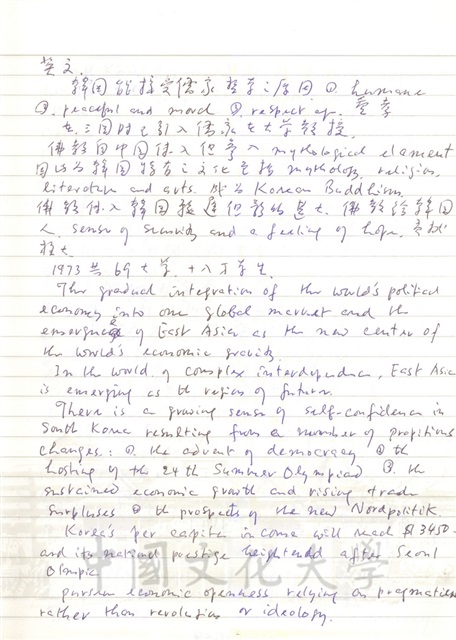 英文.
韓國能接受儒家哲學之原因 ①. humane
②. peaceful and moral ③. respect of 孝
在三國時已引入儒家在大學教授.
佛教自中國傳入但帶入 mythological element
因此為韓國語言之文化包括 mythology, religion,
literature and arts. 成為 Korean Buddhism.
佛教傳入韓國較遲但影响甚大. 佛教給韓國
人 sense of security and a feeling of hope.
極大.
1973 共 69 大學. 十八万学生.
The gradual integration of the world's political
economy into one global market and the
emergence of East Asia as the new center of
the world's economic gravity.
In the world of complex interdependence, East Asia
is emerging as the region of future.
There is a growing sense of self-confidence in
South Korea resulting from a number of propitious
changes: ①. the advent of democracy ② the
hosting of the 24th Summer Olympiad ③. the
sustained economic growth and rising trade
surpluses ④ the prospects of the new Nordpolitik.
Korea's per capita income will reach $3450-
and its national prestige heightened after Seoul
Olympic
pursue economic openness relying on pragmatism
rather than revolution or ideology.
中國文化大學